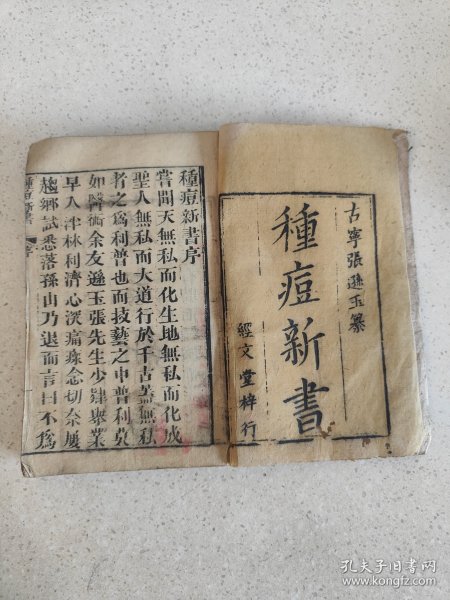 古寧張遜玉纂
種痘新書
經文堂梓行
種痘新書序
嘗聞天無私而化生地無私而化成
聖人無私而大道行於千古蓋無私
者之爲利普也而技藝之中普利莫
如醫術余友遜玉張先生少肄舉業
早入泮林利濟心深痌瘝念切奈屢
趨鄉試悉落孫山乃退而言曰不爲
種痘新書
序
孔夫子旧书网
www.kongfz.com